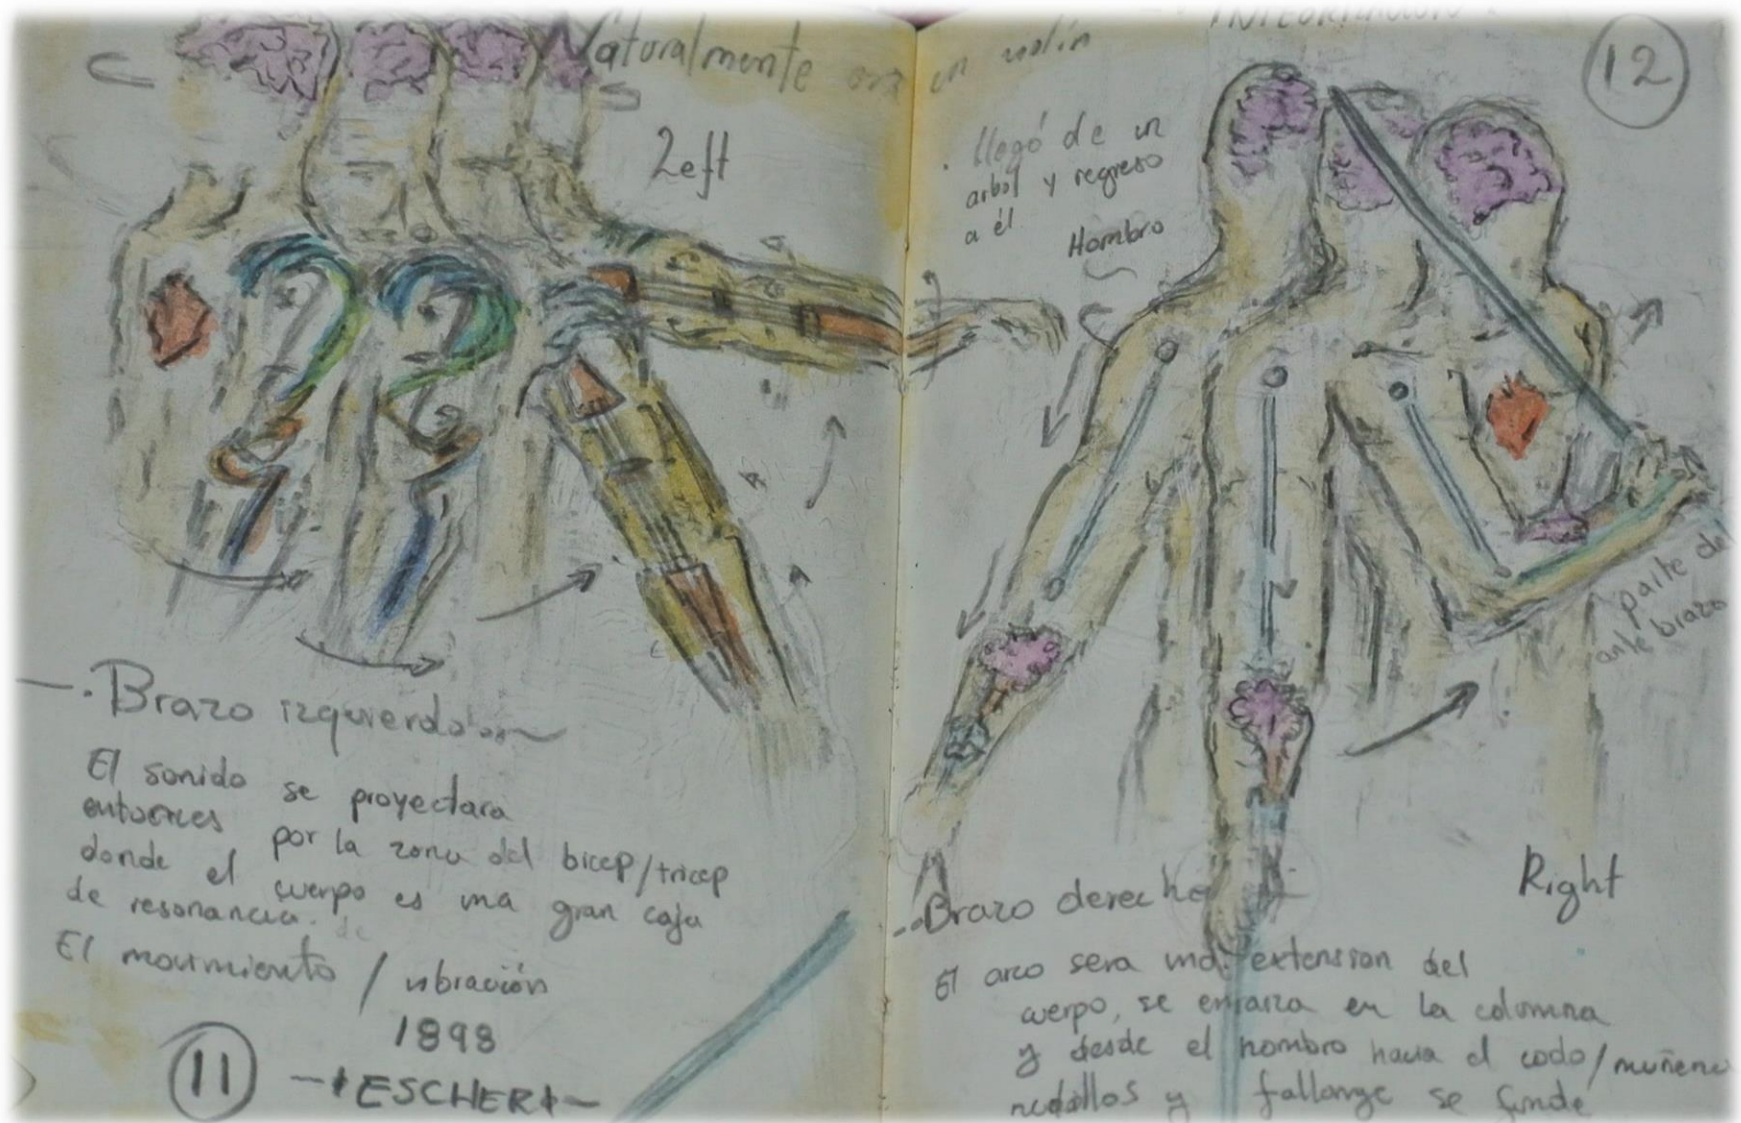 Naturalmente era un violín
Left
Brazo izquierdo
El sonido se proyectara
entonces por la zona del bicep/tricep
donde el cuerpo es una gran caja
de resonancia. de
El movimiento / vibración
1898
ESCHER
11
12
. llegó de un
arbol y regreso
a él
Hombro
parte del
ante brazo
Right
Brazo derecho
El arco sera una extension del
cuerpo, se enraiza en la columna
y desde el hombro hacia el codo/muñeca
nudillos y fallange se funde